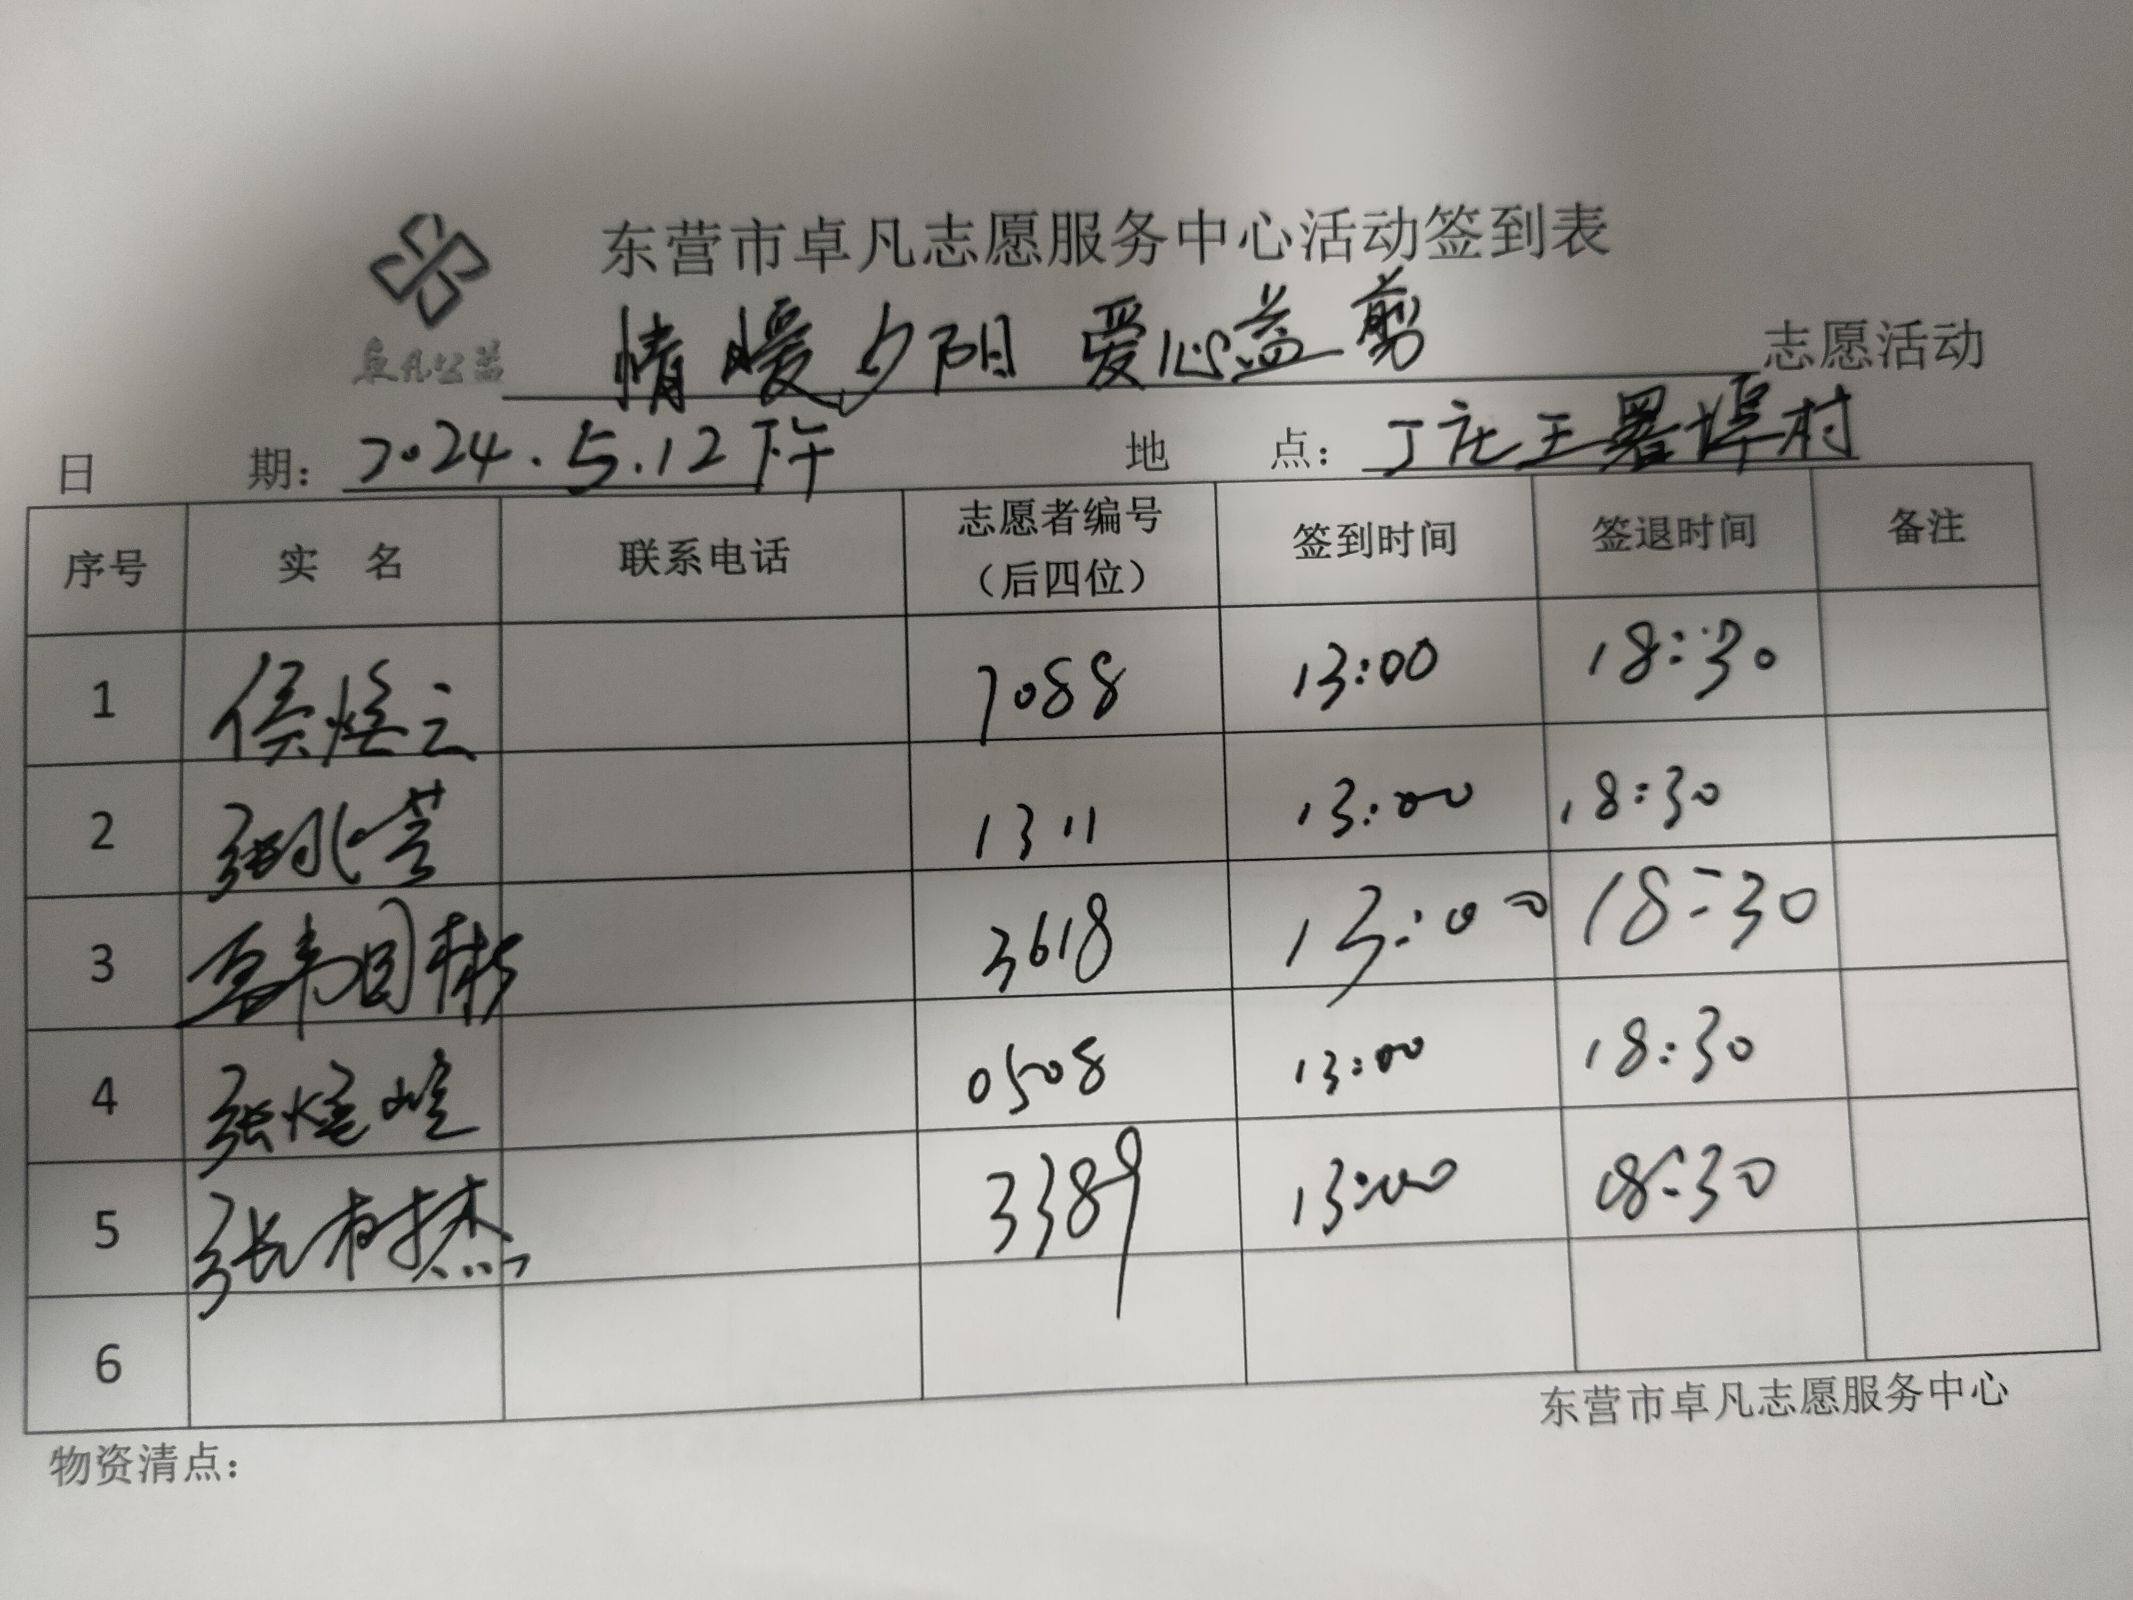 东营市卓凡志愿服务中心活动签到表
卓凡公益
情暖夕阳 爱心益剪 志愿活动
日 期: 2024.5.12下午 地 点: 丁庄王署埠村
序号 实 名 联系电话 志愿者编号（后四位） 签到时间 签退时间 备注
1 侯焕云 7088 13:00 18:30
2 张北芸 1311 13:00 18:30
3 国彬 3618 13:00 18:30
4 张 0508 13:00 18:30
5 张树杰 3389 13:00 18:30
6
东营市卓凡志愿服务中心
物资清点: